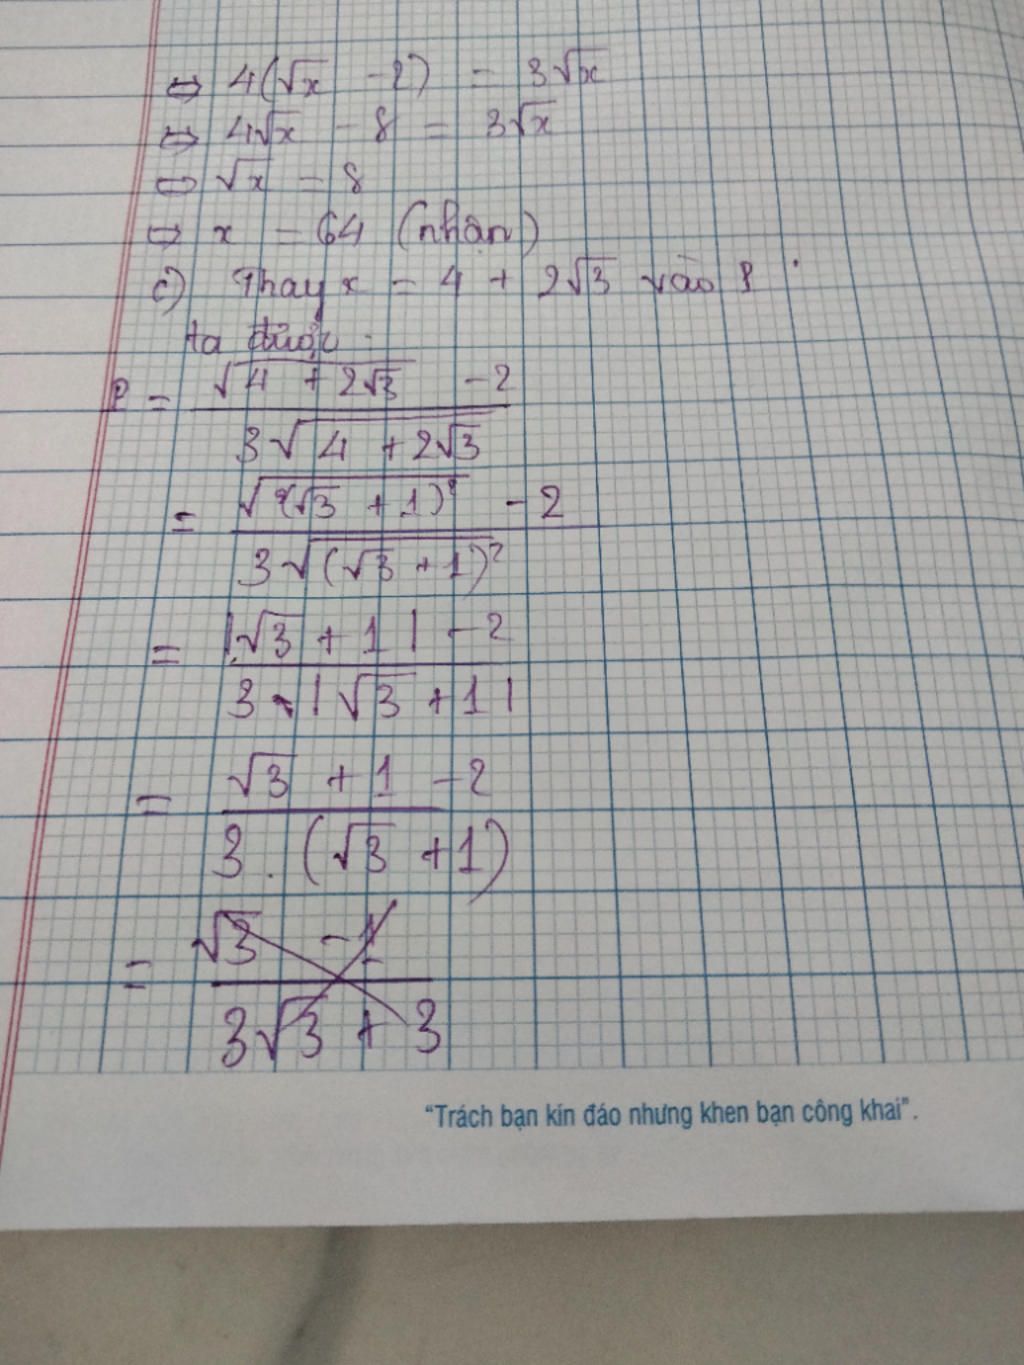 ⇔ 4(√x - 2) = 3√x
⇔ 4√x - 8 = 3√x
⇔ √x = 8
⇒ x = 64 (nhận)
c) Thay x = 4 + 2√3 vào P
ta được
P = (√(4 + 2√3) - 2) / (3√(4 + 2√3))
= (√((√3 + 1)²) - 2) / (3√((√3 + 1)²))
= (|√3 + 1| - 2) / (3.|√3 + 1|)
= (√3 + 1 - 2) / (3.(√3 + 1))
= (√3 - 1) / (3√3 + 3)
"Trách bạn kín đáo nhưng khen bạn công khai".